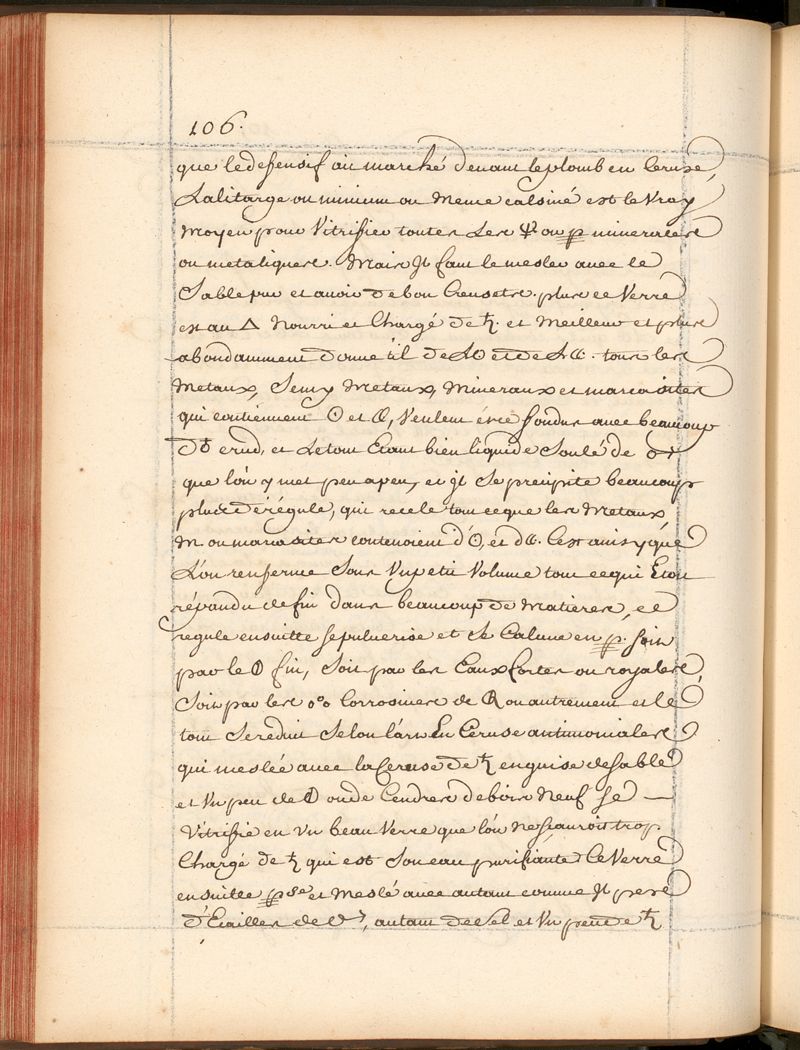 106.
que le defensif au marché devant le plomb en Ceruse,
La litarge ou minium ou Meme calsiné est le Vray
Moyen pour Vitrifier toutes Les ou minerales
ou metaliques. Mais Jl faut le mesler avec le
Sable pur et avoir de bon Creusets. plus ce Verre
est au △ Nourri et Chargé de ♄. et Meilleur et plus
abondamment donne t'il de et de tous les
Metaux, Semy Metaux, Mineraux et marcasites
qui contiennent ☉ et ☾, Veulent être fondus avec beaucoup
d'♁ crud, et Le tout Etant bien liquide Soulé de ♂
que l'on y met peu apeu, et jl Se precipite beaucoup
plus de régule, qui recele tout ce que les Metaux
M. ou marcasites contenoient d'☉, et d☾. C'est ainsy que
L'on renferme Sous Vn petit Volume tout ce qui Etoit
répandu de fin dans beaucoup de Matieres, ce
regule ensuitte se pulverise et Se Calcine en Soit
par le fin, Soit par les Eaux fortes ou royales,
Soit par les Corrosives de ou autrement et le
tout Se reduit Selon l'art En Ceruse antimoniales
qui meslée avec la Ceruse de ♄ en guise de Sable
et Vn peu de ou de Cendres de bois Neuf Se —
Vitrifie en Vn beau Verre que l'on ne Sçauroit trop
Chargé de ♄ qui est Son eau purifiante Ce Verre
ensuitte et Meslé avec autant comme Jl pese
d'Ecailles de autant de Sel et Vn peu de ♄